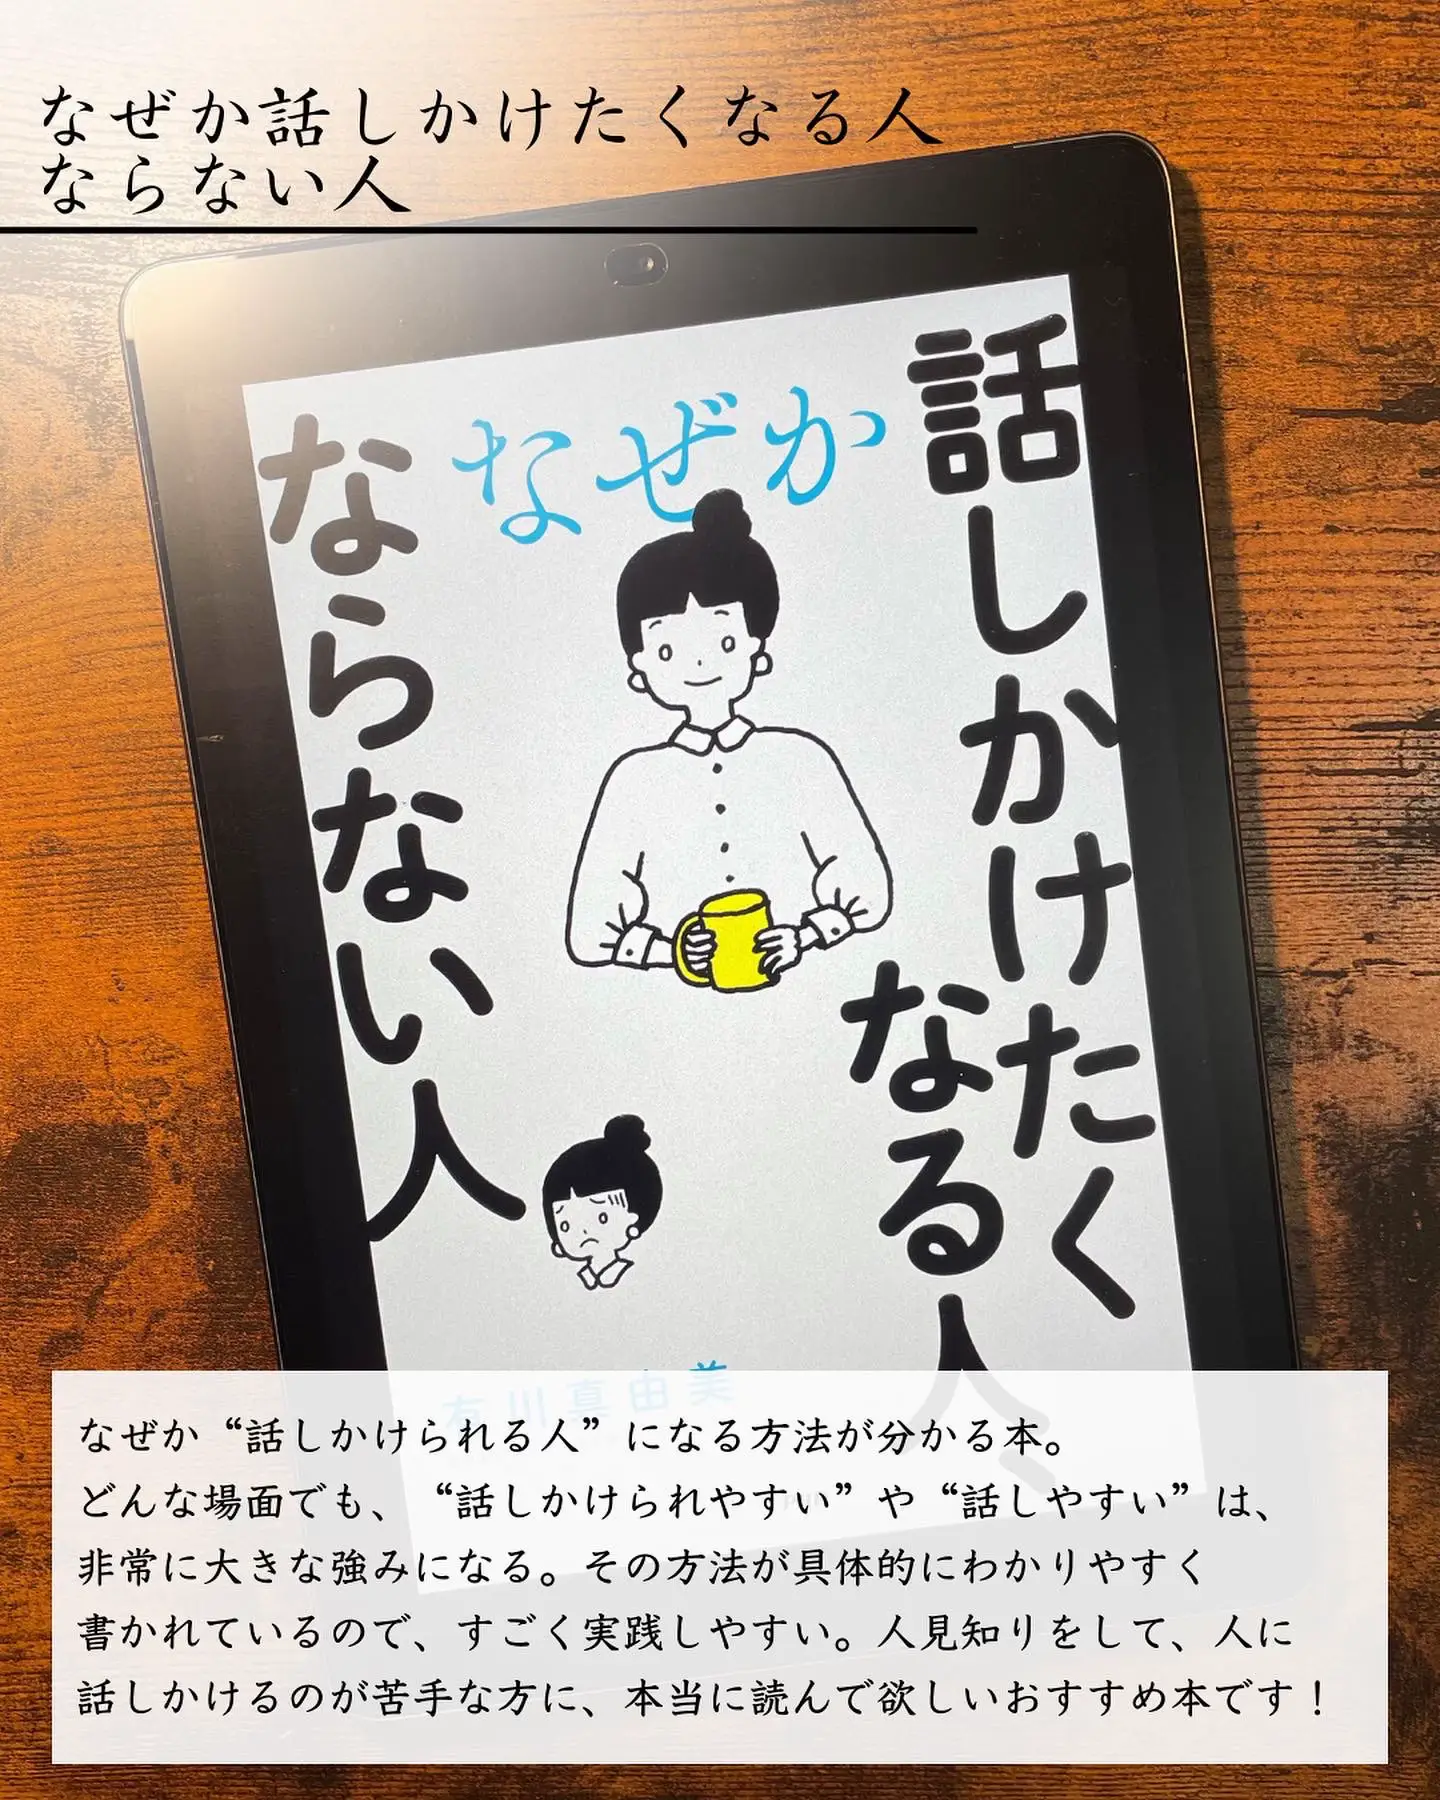 なぜか話しかけたくなる人
ならない人
話しかけたく
なる人、
なぜか
ならない人
有川真由美
なぜか“話しかけられる人”になる方法が分かる本。
どんな場面でも、“話しかけられやすい”や“話しやすい”は、
非常に大きな強みになる。その方法が具体的にわかりやすく
書かれているので、すごく実践しやすい。人見知りをして、人に
話しかけるのが苦手な方に、本当に読んで欲しいおすすめ本です！